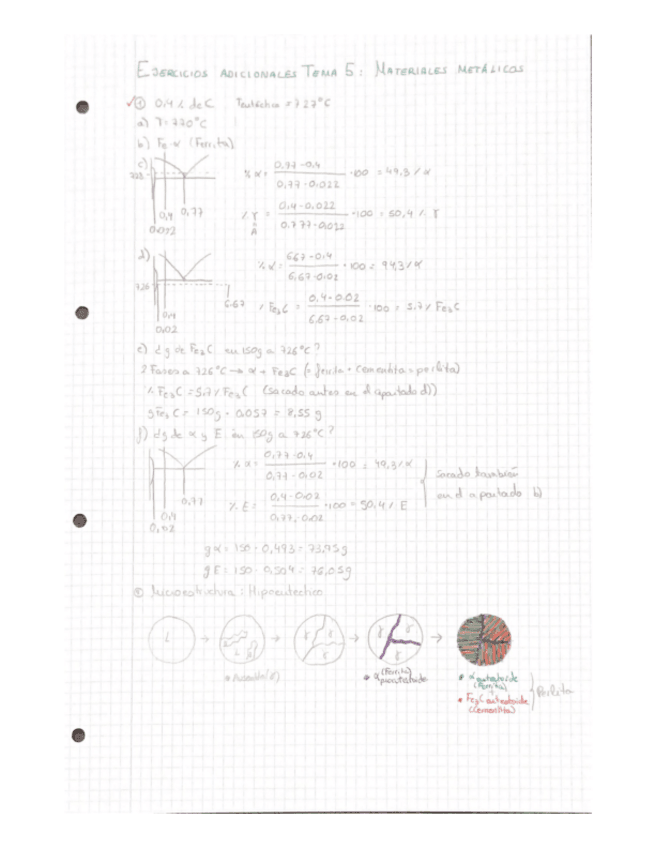 EJERCICIOS ADICIONALES TEMA 5: MATERIALES METÁLICOS
① 0,4 % de C Teutéctica = 727°C
a) T = 770°C
b) Fe-α (Ferrita)
c) 723 0,4 0,77 0.022
% α = (0,77-0,4)/(0,77-0.022) · 100 = 49,5 % α
% γ = (0,4-0,022)/(0,777-0,022) · 100 = 50,4 % γ
d) 726 0,4 0,02 6,67
% α = (6,67-0,4)/(6,67-0,02) · 100 = 94,3 % α
% Fe₃C = (0,4-0,02)/(6,67-0,02) · 100 = 5.7 % Fe₃C
e) ¿g de Fe₃C en 150g a 726°C?
2 Fases a 726°C → α + Fe₃C (= ferrita + cementita = perlita)
% Fe₃C = 5.7 % Fe₃C (sacado antes en el apartado d))
g Fe₃C = 150g · 0.057 = 8,55 g
f) ¿g de α y E en 150g a 726°C?
0,77 0,4 0,02
% α = (0,77-0,4)/(0,77-0,02) · 100 = 49,3 % α
% E = (0,4-0,02)/(0,77-0,02) · 100 = 50,4 % E
sacado también
en el apartado b)
g α = 150 · 0,493 = 73,95 g
g E = 150 · 0,504 = 76,05 g
⑧ Microestructura: Hipoeutéctico
L → → γ γ γ → γ γ γ →
Austenita (γ)
α (Ferrita) proeutectoide
α eutectoide
(Ferrita)
Fe₃C eutectoide
(Cementita)
Perlita